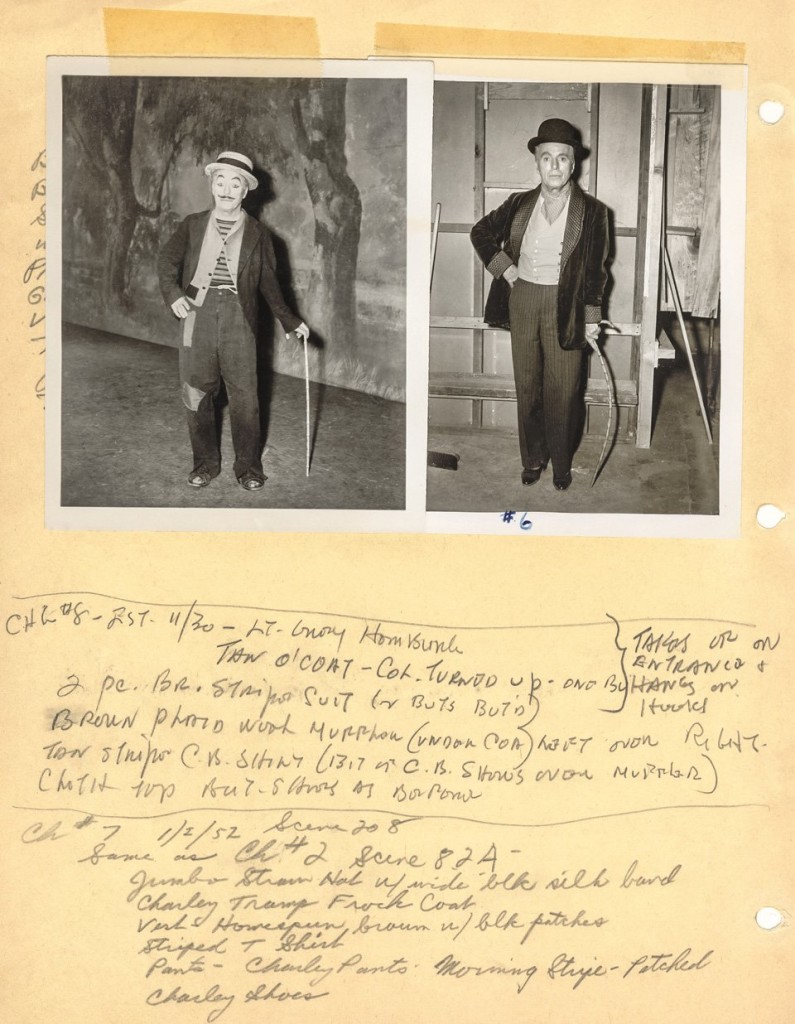 #6
CH #8 - EST. 11/30 - LT. Grey Homburg
TAN O'COAT - COL. TURNED UP - ONE BU
TAKES OFF ON
ENTRANCE &
HANGS ON
HOOKS
2 pc. BR. STRIPE SUIT (2 BUTS BUT'D)
BROWN PLAID WOOL MUFFLER (UNDER COAT) LEFT OVER RIGHT.
TAN STRIPE C.B. SHIRT (BIT OF C.B. SHOWS OVER MUFFLER)
CLOTH TOP BUT. SHOES AS BEFORE
Ch #7 1/2/52 Scene 208
Same as Ch #2 Scene 82A -
Jumbo Straw Hat w/ wide blk silk band
Charley Tramp Frock Coat
Vest - Homespun, brown w/ blk patches
Striped T Shirt
Pants - Charley Pants. Morning Stripe - Patched
Charley Shoes